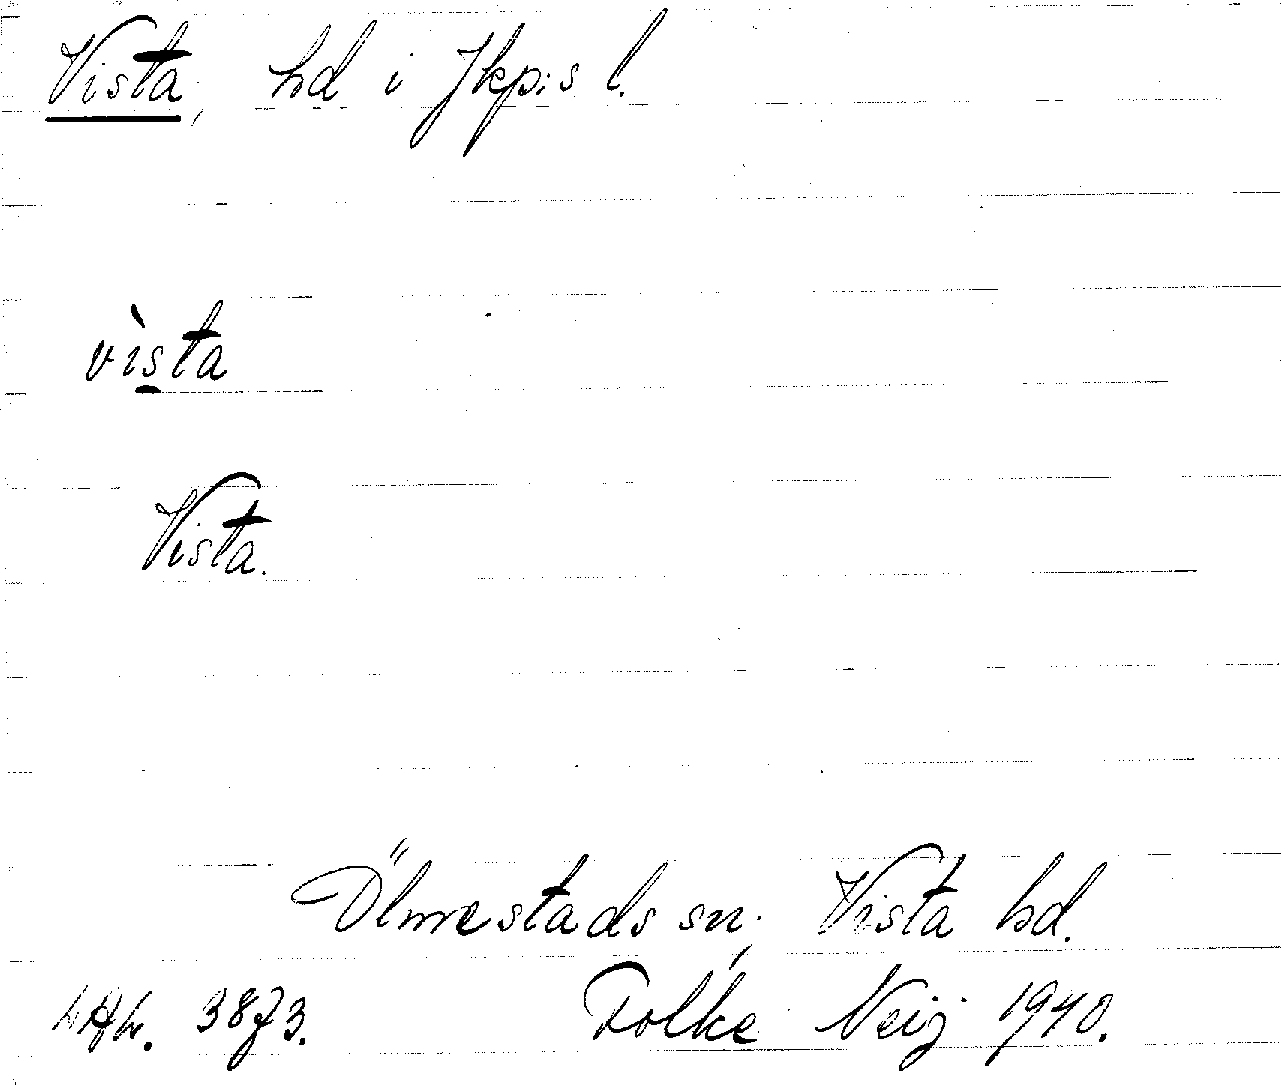 Vista, hd i Jkp:s l.
vìsta
Vista.
Ölmestads sn; Vista hd.
3873. Folke Neij 1940.